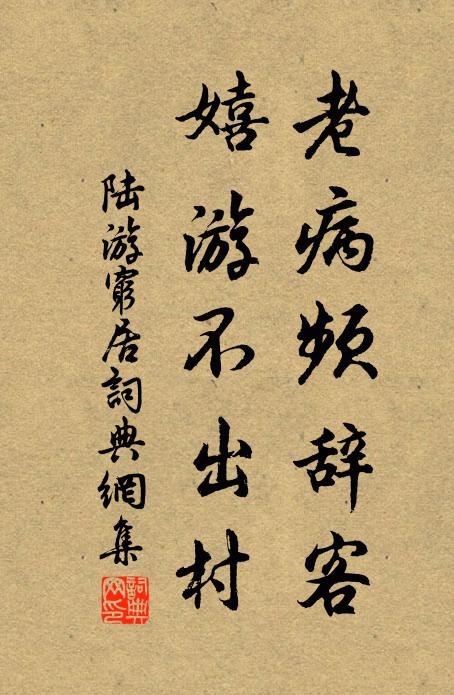 老病频辞客
嬉游不出村
陆游窮居詞典網集
詞典网印